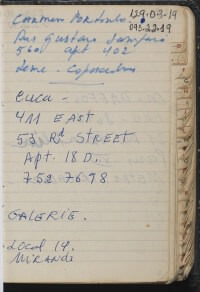 Carmem Portinho 129.03-19
Rua Gustavo Sampaio 093-22.19
560 apt 402
Leme - Copacabana
CUCA -
411 EAST
53 Rd STREET
Apt. 18 D.
752 7698
GALERIE.
LOCAL 14.
MIRANDE